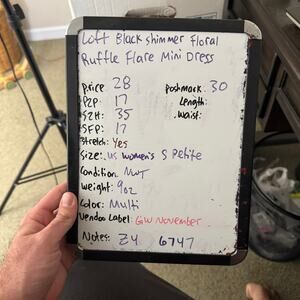 Loft Black shimmer Floral
Ruffle Flare Mini Dress
Price: 28
Poshmark: 30
P2P: 17
Length:
S2H: 35
Waist:
SFP: 17
Stretch: Yes
Size: US women's S Petite
Condition: NWT
Weight: 9oz
Color: Multi
Vendoo Label: GW November
Notes: Z4 6747